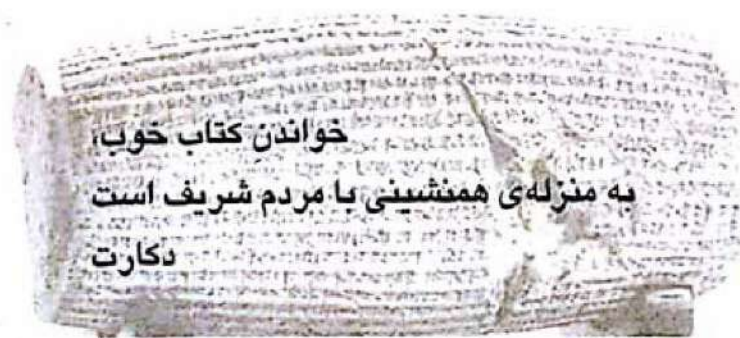 خواندنِ کتاب خوب،
به منزله‌ی همنشینی با مردم شریف است
دکارت